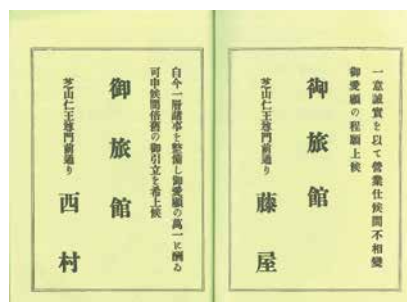 一意誠實を以て營業仕候間不相變
御愛顧の程願上候
御旅館
芝山仁王尊門前通り
藤屋
自今一層諸事を整備し御愛顧の萬一に酬ゐ
可申候間倍舊の御引立を希上候
御旅館
芝山仁王尊門前通り
西村